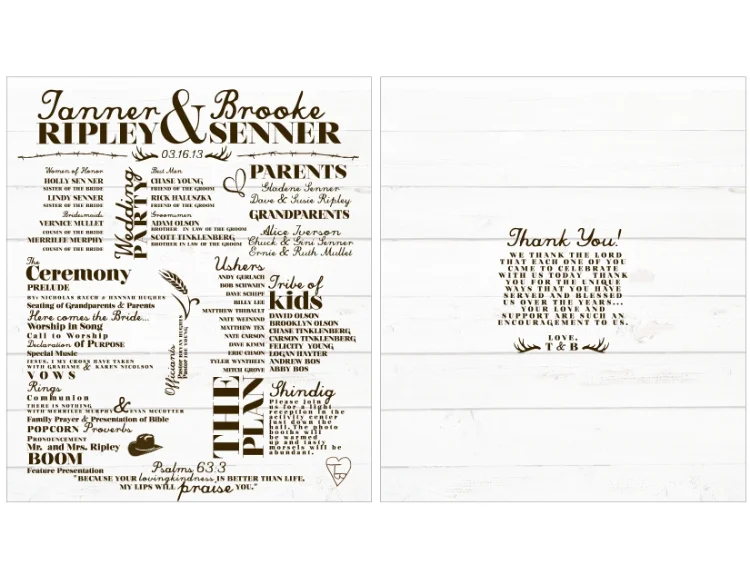 Tanner & Brooke
RIPLEY & SENNER
03.16.13
Wedding
PARTY
Women of Honor
HOLLY SENNER
SISTER OF THE BRIDE
LINDY SENNER
SISTER OF THE BRIDE
Bridesmaids
VERNICE MULLET
COUSIN OF THE BRIDE
MERRILEE MURPHY
COUSIN OF THE BRIDE
Best Men
CHASE YOUNG
FRIEND OF THE GROOM
RICK HALUSZKA
FRIEND OF THE GROOM
Groomsmen
ADAM OLSON
BROTHER IN LAW OF THE GROOM
SCOTT TINKLENBERG
BROTHER IN LAW OF THE GROOM
PARENTS
Gladene Senner
Dave & Susie Ripley
GRANDPARENTS
Alice Iverson
Chuck & Gini Senner
Ernie & Ruth Mullet
The
Ceremony
PRELUDE
BY: NICHOLAS RAUCH & HANNAH HUGHES
Seating of Grandparents & Parents
Here comes the Bride...
Worship in Song
Call to Worship
Declaration OF PURPOSE
Special Music
JESUS, I MY CROSS HAVE TAKEN
WITH GRAHAME & KAREN NICOLSON
VOWS
Rings
Communion
THERE IS NOTHING
WITH MERRILEE MURPHY & EVAN MCCUTTER
Family Prayer & Presentation of Bible
POPCORN Proverbs
PRONOUNCEMENT
Mr. and Mrs. Ripley
BOOM
Feature Presentation
Officiants
Pastor BRYAN HUGHES
Pastor JOE YOUNG
Ushers
ANDY GERLACH
BOB SCHWAHN
DAVE SCHIPF
BILLY LEE
MATTHEW THIBAULT
NATE WEINAND
MATTHEW TEX
NATE CARSON
DAVE KIMM
ERIC CHSON
TYLER WYNTHEIN
MITCH GROVE
Tribe of
kids
DAVID OLSON
BROOKLYN OLSON
CHASE TINKLENBERG
CARSON TINKLENBERG
FELICITY YOUNG
LOGAN HAYTER
ANDREW BOS
ABBY BOS
THE
PLAN
Shindig
Please join
us for a light
reception in the
activity center
just down the
hall. The photo
booths will
be warmed
up and tasty
morsels will be
abundant.
Psalms 63:3
"BECAUSE YOUR lovingkindness IS BETTER THAN LIFE,
MY LIPS WILL praise YOU."
T
B
Thank You!
WE THANK THE LORD
THAT EACH ONE OF YOU
CAME TO CELEBRATE
WITH US TODAY THANK
YOU FOR THE UNIQUE
WAYS THAT YOU HAVE
SERVED AND BLESSED
US OVER THE YEARS...
YOUR LOVE AND
SUPPORT ARE SUCH AN
ENCOURAGEMENT TO US.
LOVE,
T & B